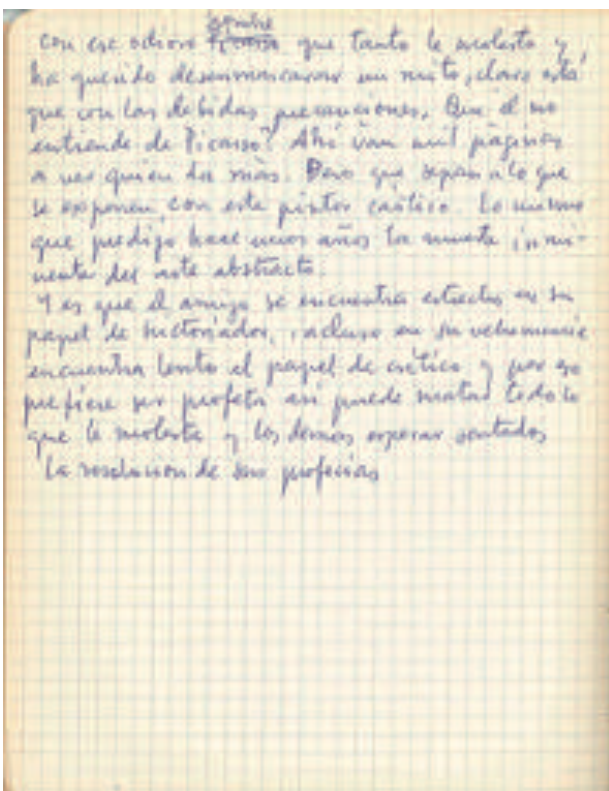 hombre
con ese odioso Picasso que tanto le molesta y
ha querido desenmascarar un mito, claro está
que con las debidas precauciones. Que él no
entiende de Picasso? Ahí van mil páginas
a ver quien da más. Pero que sepan a lo que
se exponen, con este pintor caótico. Lo mismo
que predijo hace unos años la muerte inmi-
nente del arte abstracto.
Y es que el amigo se encuentra estrecho en su
papel de historiador, incluso en su vehemencia
encuentra lento el papel de crítico y por eso
prefiere ser profeta así puede matar todo lo
que le molesta y los demás esperar sentados
la resolución de sus profecías